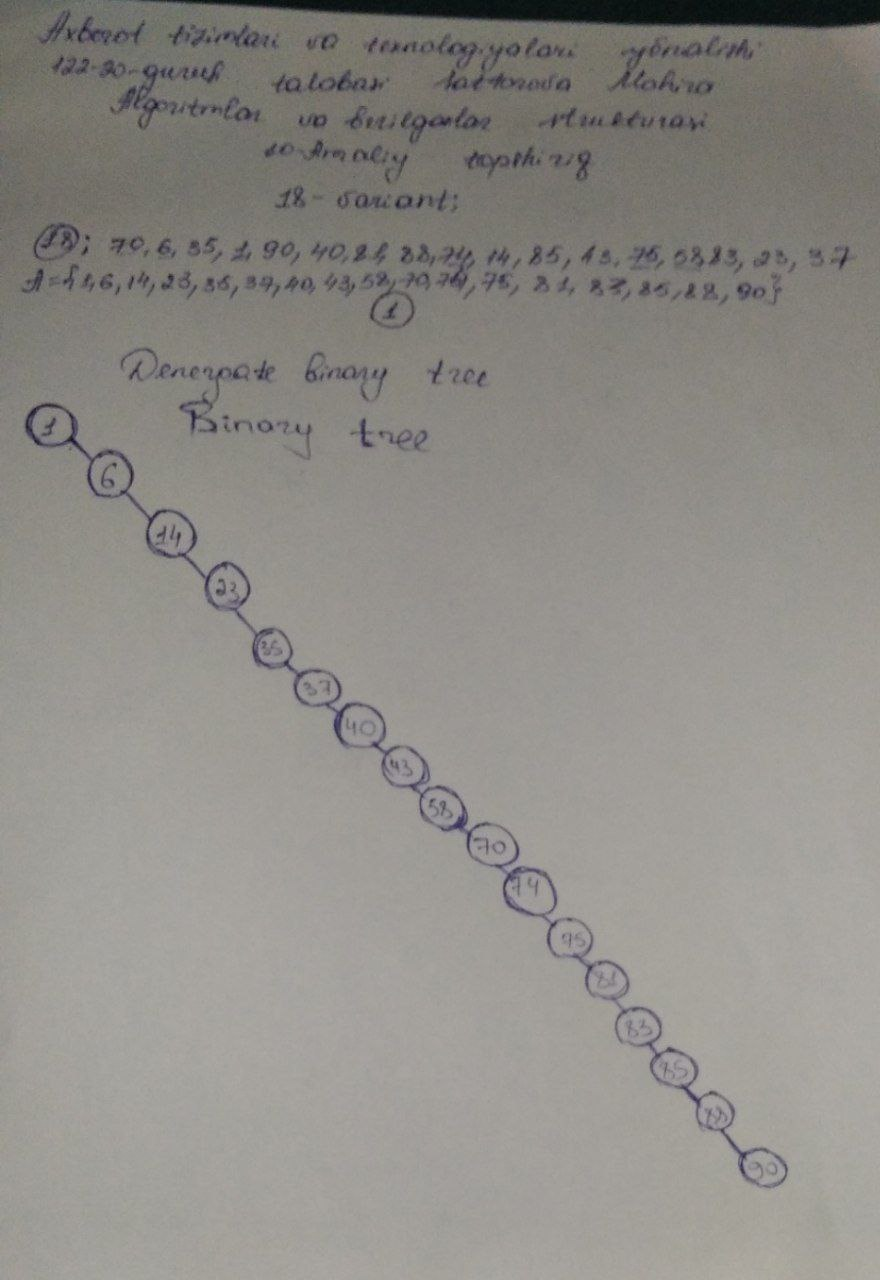 Axborot tizimlari va texnologiyalari yo'nalishi
122-20-guruh talabasi Sattorova Mohira
Algoritmlar va berilganlar strukturasi
10-Amaliy topshiriq
18-variant;
18; 70, 6, 35, 1, 90, 40, 81, 88, 74, 14, 85, 43, 75, 58, 83, 23, 37
A={1, 6, 14, 23, 35, 37, 40, 43, 58, 70, 74, 75, 81, 83, 85, 88, 90}
1
Denerpate binary tree
Binary tree
1
6
14
23
35
37
40
43
58
70
74
75
81
83
85
88
90